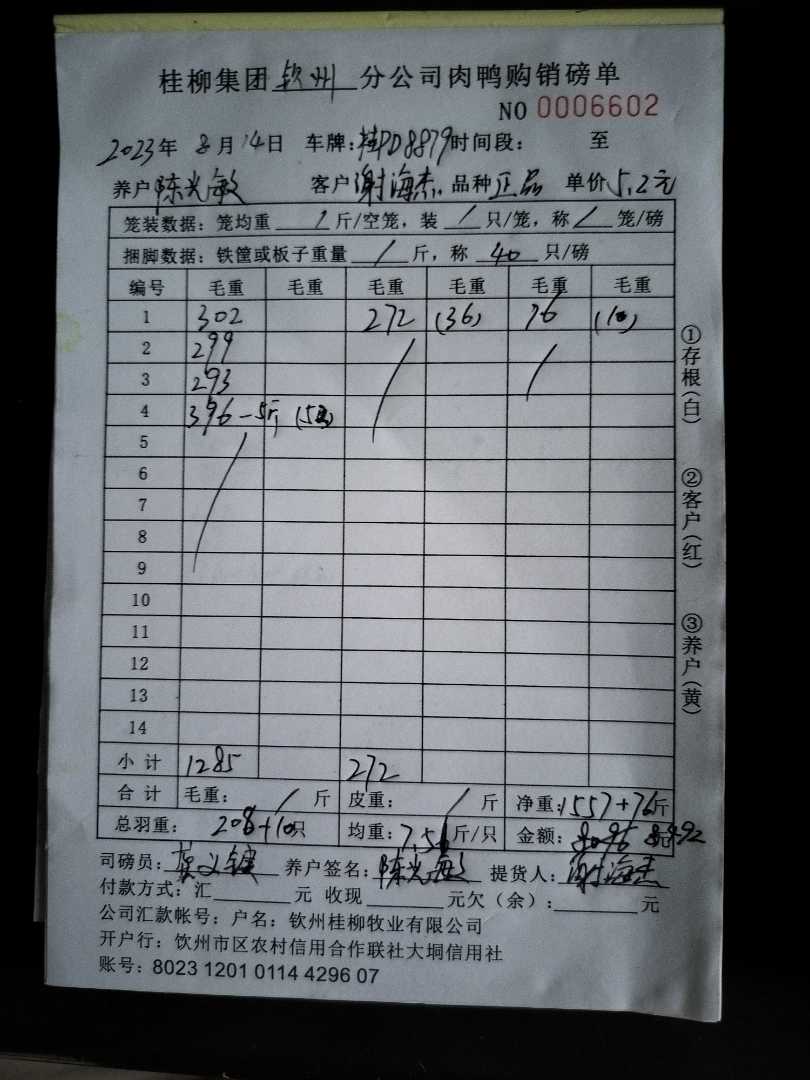 桂柳集团钦州分公司肉鸭购销磅单
NO 0006602
2023年8月14日 车牌:桂PD8879时间段: 至
养户陈光敏 客户谢海杰 品种正品 单价5.2元
笼装数据:笼均重 / 斤/空笼,装 / 只/笼,称 / 笼/磅
捆脚数据:铁筐或板子重量 / 斤,称 40 只/磅
编号 毛重 毛重 毛重 毛重 毛重 毛重
1 302 272 (36) 76 (10)
2 299
3 293
4 396-5斤
5
6
7
8
9
10
11
12
13
14
小计 1285 272
合计 毛重: / 斤 皮重: / 斤 净重:1557+76斤
总羽重: 208+10只 均重:7.5 斤/只 金额:8096
司磅员: 养户签名:陈光敏 提货人:谢海杰
付款方式:汇 元 收现 元欠(余): 元
公司汇款帐号:户名:钦州桂柳牧业有限公司
开户行:饮州市区农村信用合作联社大垌信用社
账号:8023 1201 0114 4296 07
①存根(白) ②客户(红) ③养户(黄)